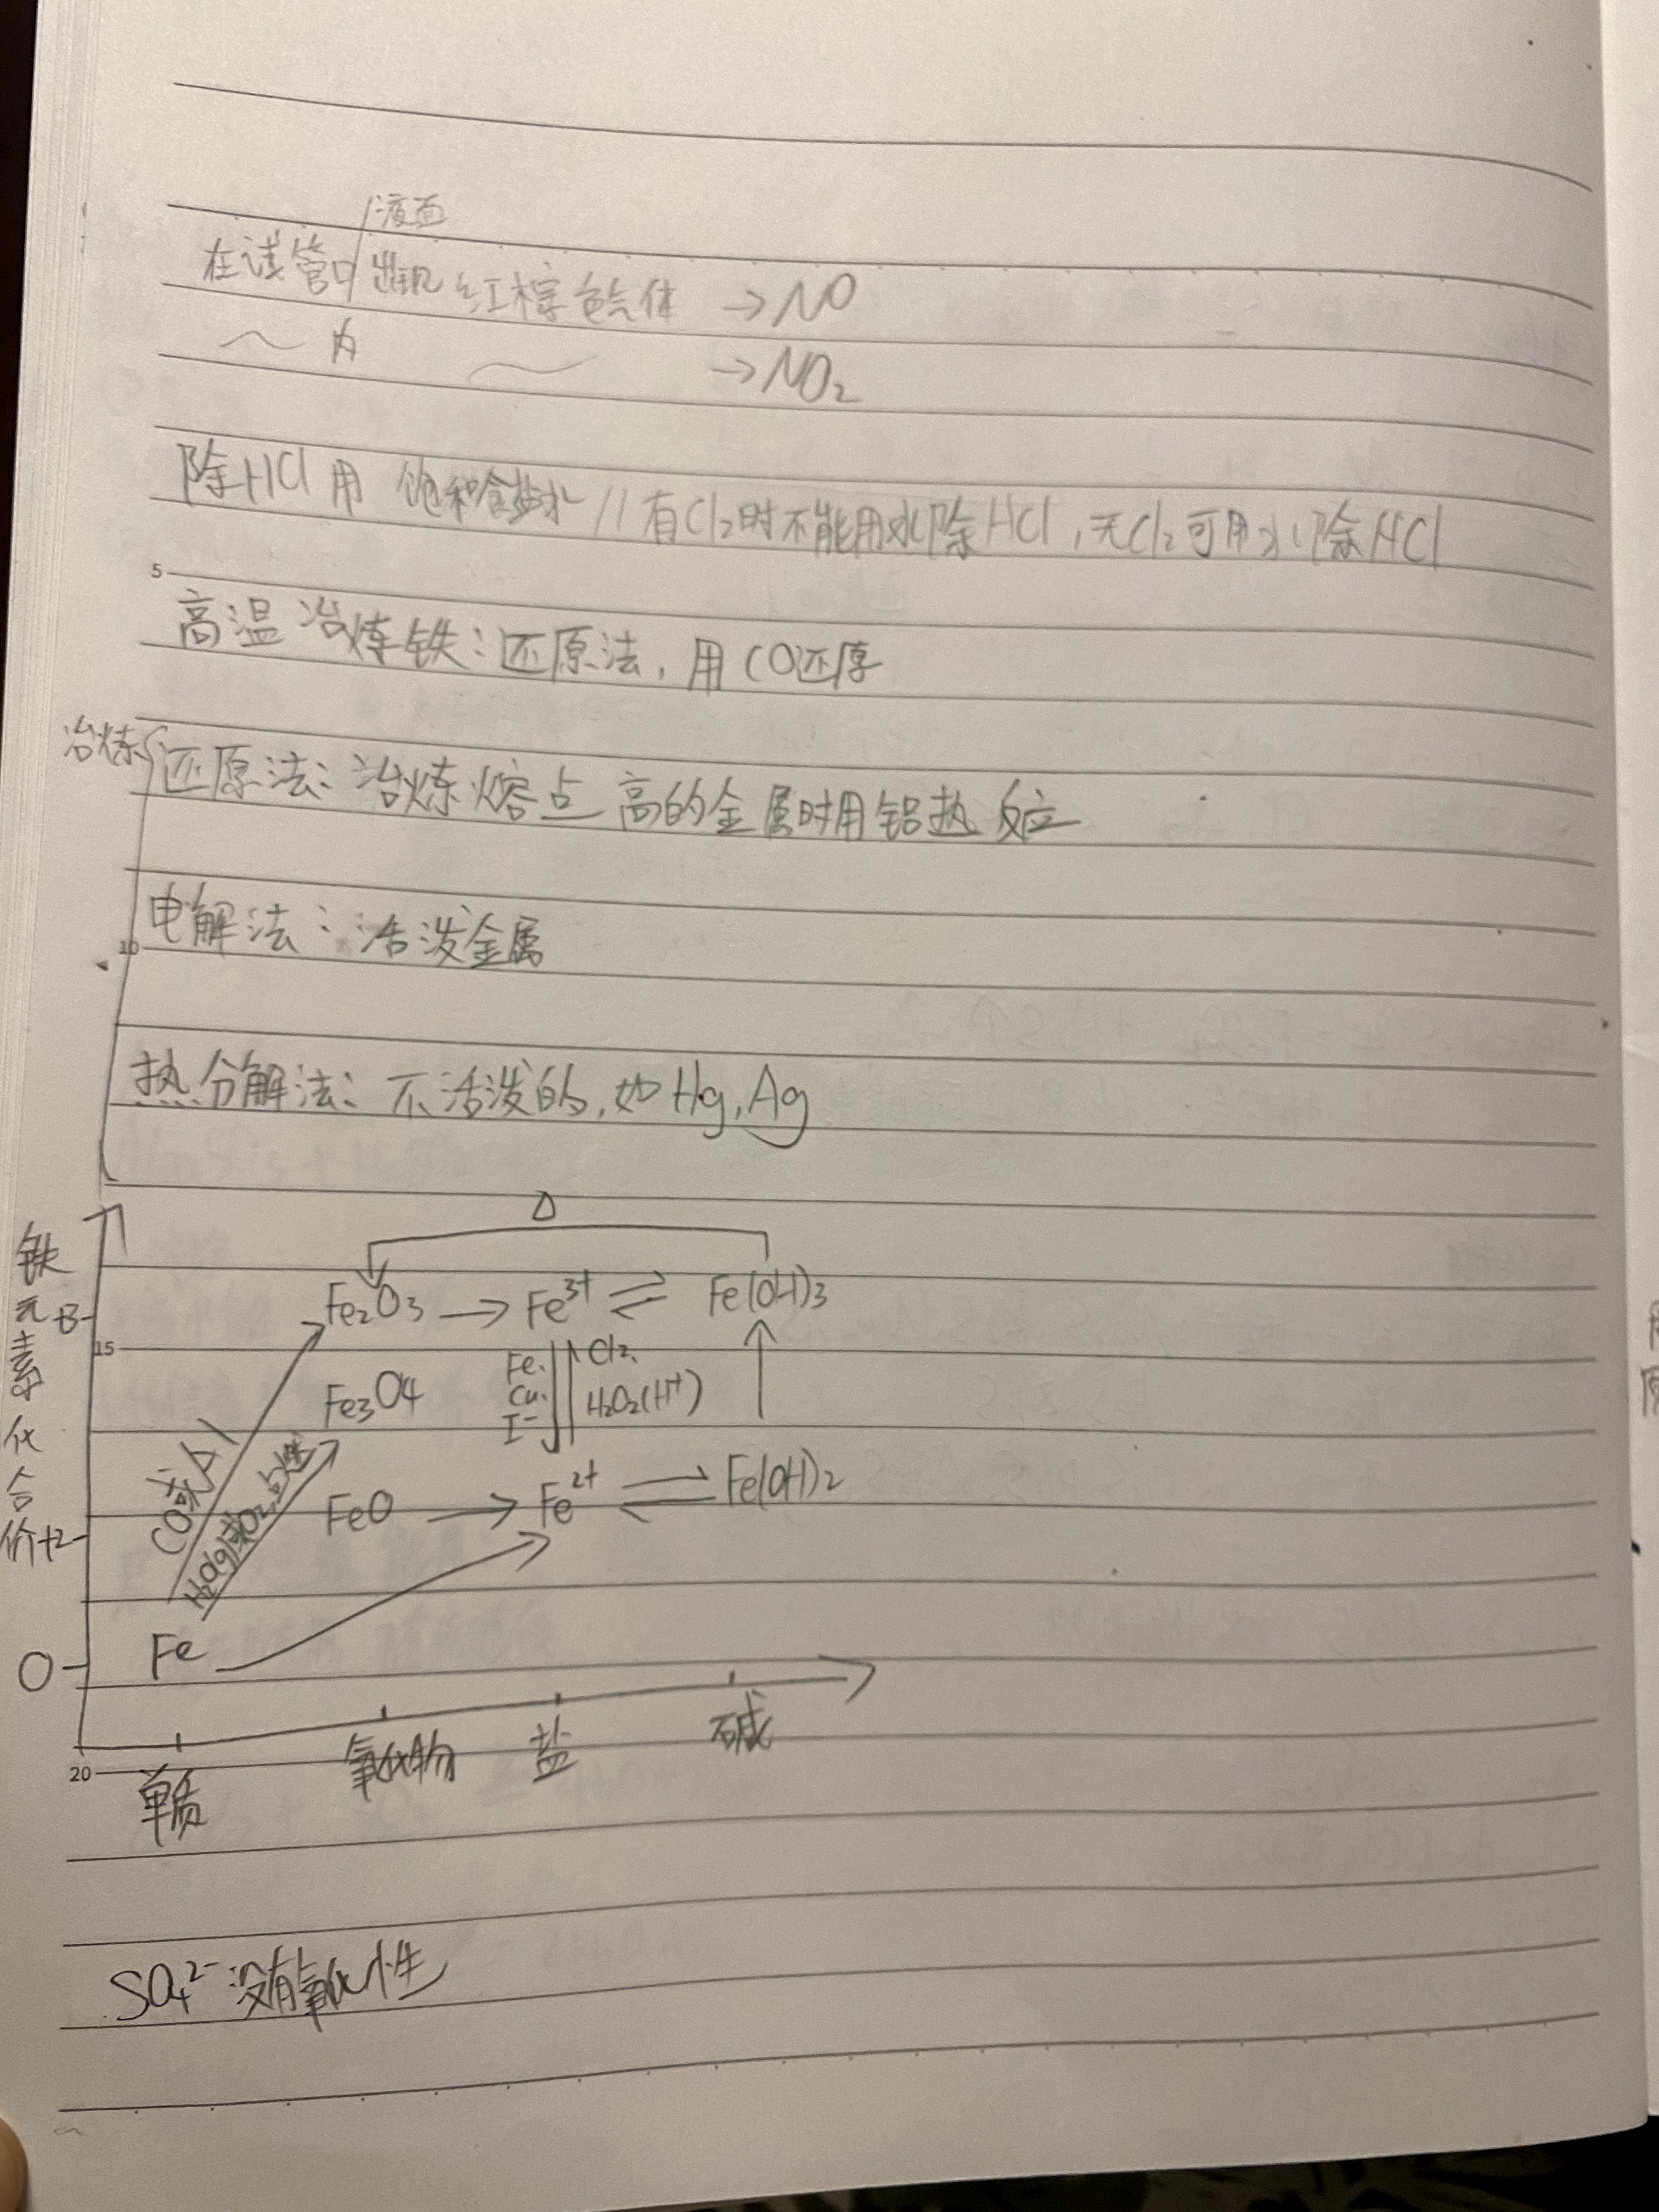 液面
在试管口/出现 红棕色气体 →NO
～内 ～ →NO₂
除HCl用 饱和食盐水 // 有Cl₂时不能用水除HCl，无Cl₂可用水除HCl
5
高温冶炼铁：还原法，用CO还原
冶炼{还原法：冶炼熔点高的金属时用铝热反应
10
电解法：活泼金属
热分解法：不活泼的，如Hg，Ag
Δ
铁元素化合价
+3
Fe₂O₃ → Fe³⁺ ⇌ Fe(OH)₃
15
Fe. Cu. I⁻
Cl₂、H₂O₂(H⁺)
Fe₃O₄
CO或Al
H₂O(g)或O₂,点燃
+2
FeO → Fe²⁺ ⇌ Fe(OH)₂
0
Fe
单质 氧化物 盐 碱
20
SO₄²⁻没有氧化性